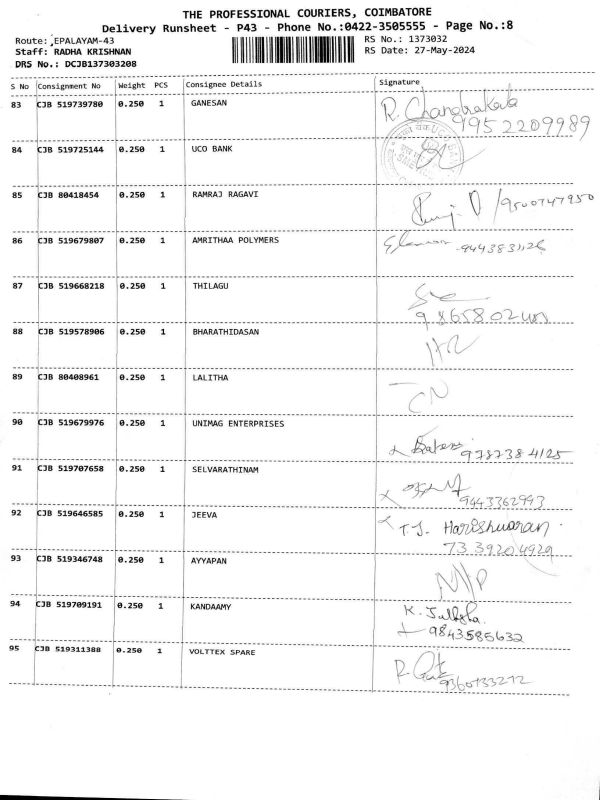 THE PROFESSIONAL COURIERS, COIMBATORE
Delivery Runsheet - P43 - Phone No.:0422-3505555 - Page No.:8
Route: EPALAYAM-43
RS No.: 1373032
Staff: RADHA KRISHNAN
RS Date: 27-May-2024
DRS No.: DCJB137303208
S No Consignment No Weight PCS Consignee Details Signature
83 CJB 519739780 0.250 1 GANESAN R. Chandrakala
9952209989
84 CJB 519725144 0.250 1 UCO BANK
85 CJB 80418454 0.250 1 RAMRAJ RAGAVI /9500747950
86 CJB 519679807 0.250 1 AMRITHAA POLYMERS
87 CJB 519668218 0.250 1 THILAGU
88 CJB 519578906 0.250 1 BHARATHIDASAN
89 CJB 80408961 0.250 1 LALITHA
90 CJB 519679976 0.250 1 UNIMAG ENTERPRISES
9787384125
91 CJB 519707658 0.250 1 SELVARATHINAM
9443362993
92 CJB 519646585 0.250 1 JEEVA T.J. Harishwaran
73 39204929
93 CJB 519346748 0.250 1 AYYAPAN
94 CJB 519709191 0.250 1 KANDAAMY K.
9843585632
95 CJB 519311388 0.250 1 VOLTTEX SPARE R.